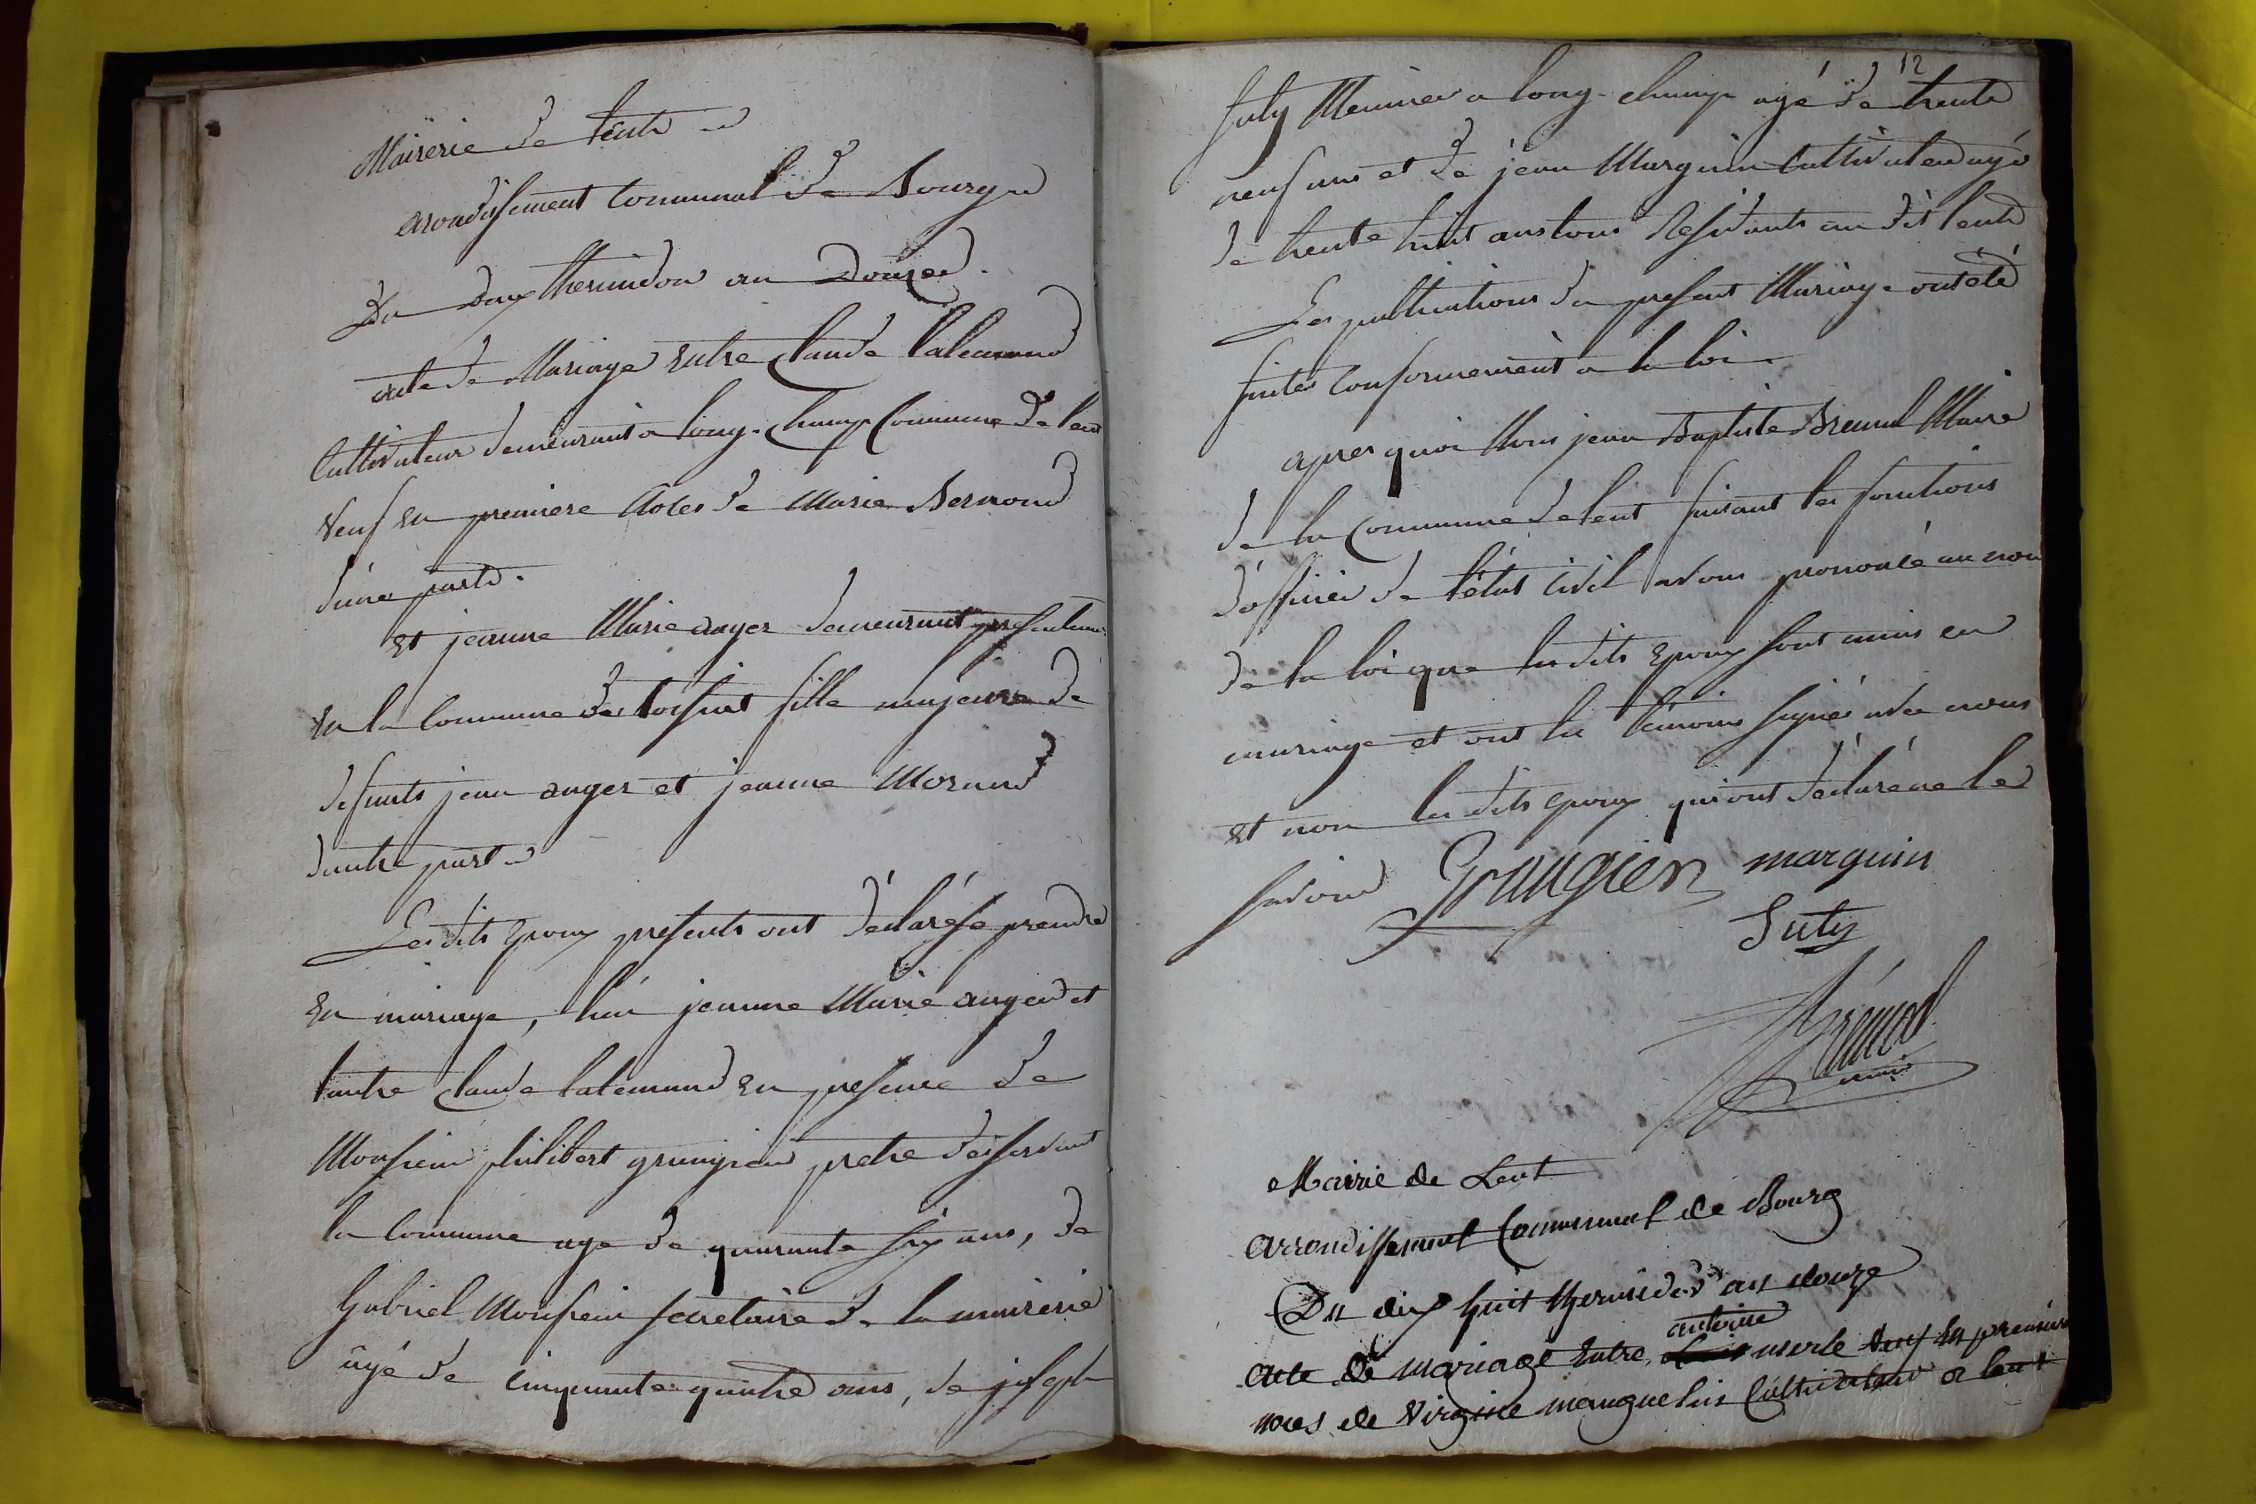 Mairerie de lent
arondissement Communal de Bourg
Du Deux thermidor an Douze.
acte de Mariage Entre Claude lalemand
Cultivateur demeurant a long-champ Commune de lent
veuf en premiere Noces de Marie Bernond
d'une part.
et jeanne Marie auger demeurant presentement
en la Commune de fille majeure de
defunts jean auger et jeanne Morand
dautre part
Les dits Epoux presents ont déclaré se prendre
En mariage, lun jeanne Marie auger et
lautre Claude lalemand En presence de
Monsieur philibert grangier pretre desservant
la Commune age de quarante six ans, de
Gabriel Monsieur secretaire de la mairerie
âgé de Cinquante quatre ans, de joseph
12
Suty Meunier a long-champ agé de trente
neuf ans et de jean Marguin Cultivateur agé
de trente huit ans tous Residants au dit lent
Les publications du present Mariage ont été
faites Conformement a la loi.
apres quoi Nous jean Baptiste Maire
de la Commune de lent faisant les fonctions
d'officier de l'état Civil avons prononcé au nom
de la loi que les dits Epoux sont unis en
mariage et ont les témoins signés avec nous
et non les dits Epoux qui ont déclaré ne le
savoir Grangier marguin
Suty
maire
Mairie de Lent
arrondissement Communal de Bourg
Du dix huit thermidor an douze
antoine
acte de mariage Entre merle veuf En premiere
noces de Virginie manguelin Cultivateur a lent